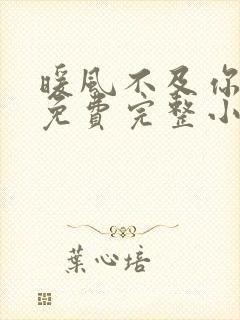 暖风不及你
免费完整小
葉心培